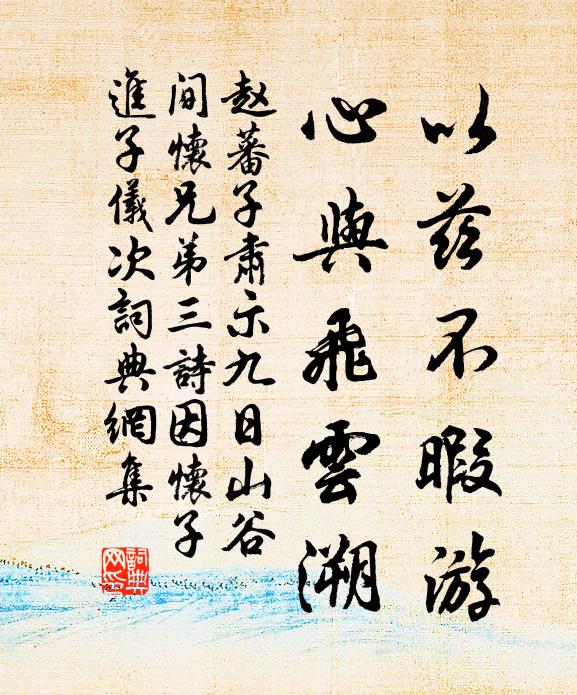 以茲不暇游
心與飛雲溯
赵蕃子肅示九日山谷
间懷兄弟三詩因懷子
進子儀次詞典網集
詞典网印